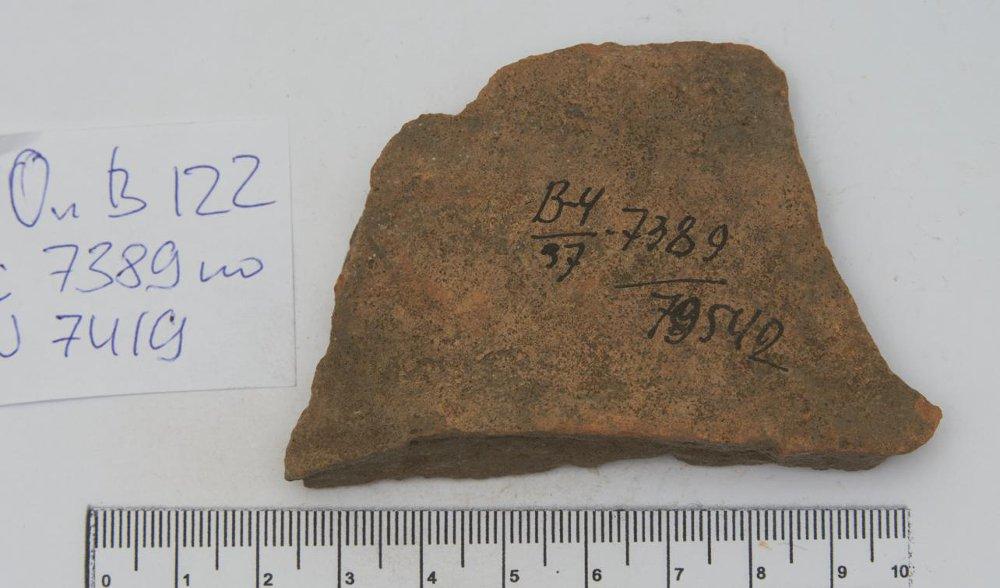 Оп В 122
с 7389 по
7419
В-4
37
·7389
79542
0 1 2 3 4 5 6 7 8 9 10